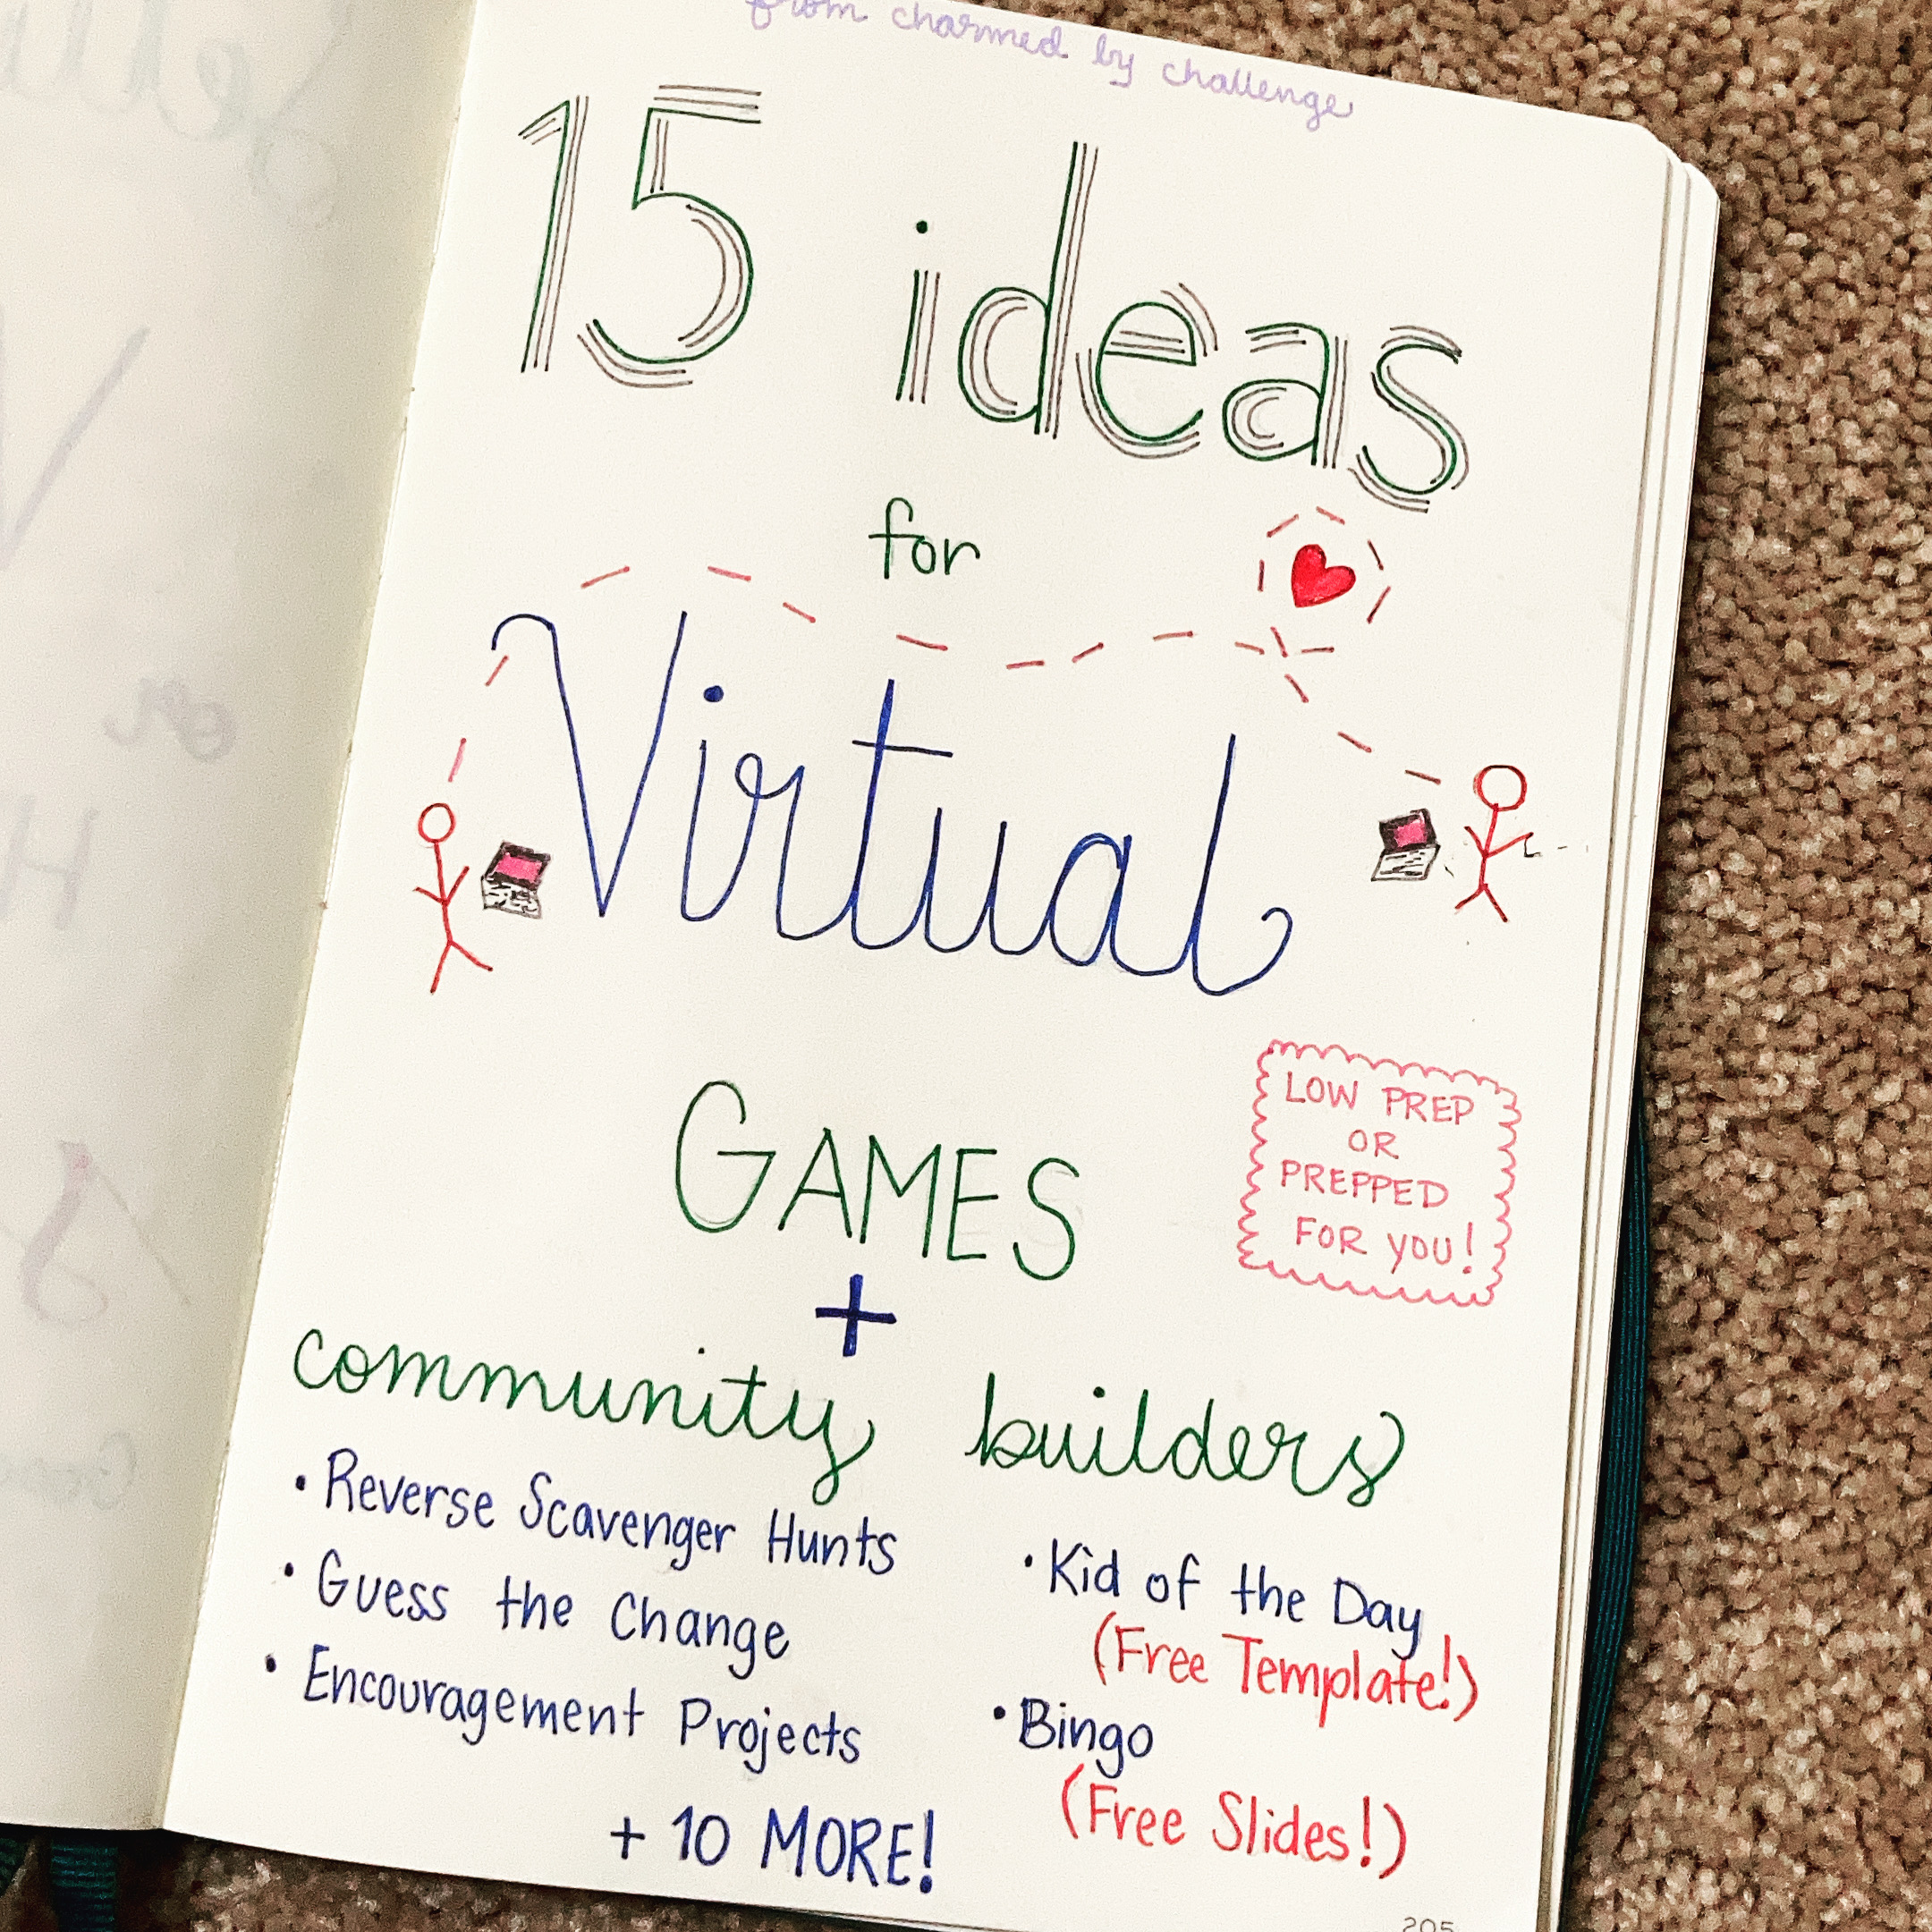 from charmed by challenge
15 ideas
for
Virtual
GAMES
LOW PREP
OR
PREPPED
FOR YOU!
+
community builders
• Reverse Scavenger Hunts
• Guess the Change
• Encouragement Projects
• Kid of the Day
(Free Template!)
• Bingo
(Free Slides!)
+ 10 MORE!
205